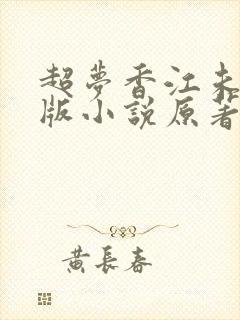 超夢香江未
版小說原著
黃長春